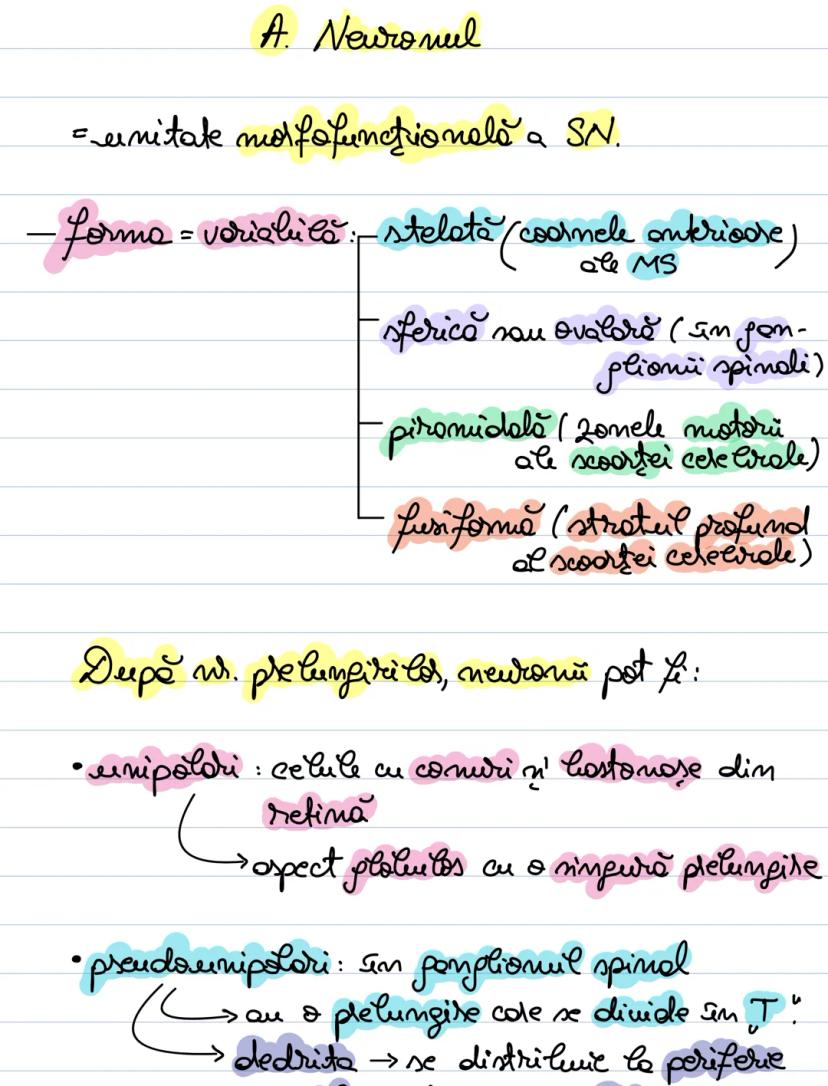 A. Neuronul
= unitate morfofuncțională a SN.
— forma = variabilă: stelată (coarnele anterioare
ale MS)
sferică sau ovalară (în gan-
glionii spinali)
piramidală (zonele motorii
ale scoarței cerebrale)
fusiformă (stratul profund
al scoarței cerebrale)
După nr. prelungirilor, neuronii pot fi:
• unipolari: celule cu conuri și bastonașe din
retină
→ aspect globulos cu o singură prelungire
• pseudounipolari: în ganglionul spinal
→ au o prelungire care se divide în „T”.
→ dedrita → se distribuie la periferie